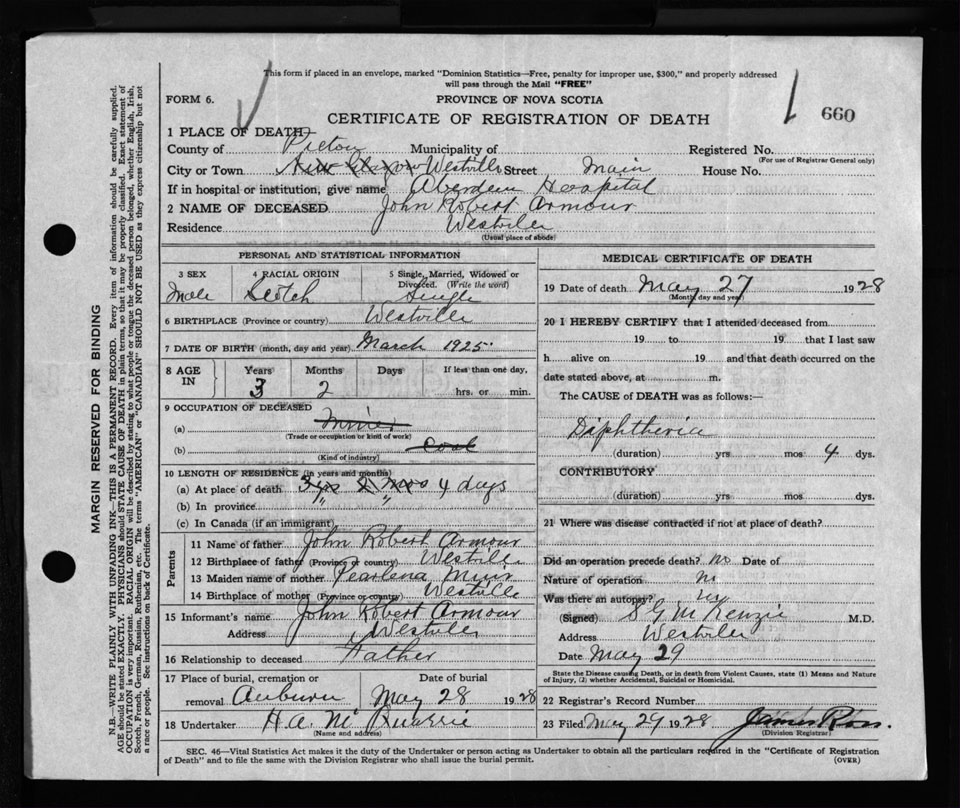 This form if placed in an envelope, marked "Dominion Statistics—Free, penalty for improper use, $300," and properly addressed
will pass through the Mail "FREE"
FORM 6.
PROVINCE OF NOVA SCOTIA
660
CERTIFICATE OF REGISTRATION OF DEATH
1 PLACE OF DEATH
County of Pictou Municipality of Registered No.
(For use of Registrar General only)
City or Town New Glasgow Westville Street Main House No.
If in hospital or institution, give name Aberdeen Hospital
2 NAME OF DECEASED John Robert Armour
Residence Westville
(Usual place of abode)
PERSONAL AND STATISTICAL INFORMATION
3 SEX 4 RACIAL ORIGIN 5 Single, Married, Widowed or
Divorced. (Write the word)
Male Scotch Single
6 BIRTHPLACE (Province or country) Westville
7 DATE OF BIRTH (month, day and year) March 1925
8 AGE IN Years Months Days If less than one day,
3 2 hrs. or min.
9 OCCUPATION OF DECEASED
(a) Miner
(Trade or occupation or kind of work)
(b) Coal
(Kind of industry)
10 LENGTH OF RESIDENCE (in years and months)
(a) At place of death 3 yrs 2 mos 4 days
(b) In province " "
(c) In Canada (if an immigrant)
Parents
11 Name of father John Robert Armour
12 Birthplace of father (Province or country) Westville
13 Maiden name of mother Pearlena Muir
14 Birthplace of mother (Province or country) Westville
15 Informant's name John Robert Armour
Address Westville
16 Relationship to deceased Father
17 Place of burial, cremation or Date of burial
removal Auburn May 28 1928
18 Undertaker H.A. McQuarrie
(Name and address)
MEDICAL CERTIFICATE OF DEATH
19 Date of death May 27 1928
(Month, day and year)
20 I HEREBY CERTIFY that I attended deceased from
19 to 19 that I last saw
h alive on 19 and that death occurred on the
date stated above, at m.
The CAUSE of DEATH was as follows:—
Diphtheria
(duration) yrs mos 4 dys.
CONTRIBUTORY
(duration) yrs mos dys.
21 Where was disease contracted if not at place of death?
Did an operation precede death? No Date of
Nature of operation
Was there an autopsy?
(Signed) S G McKenzie M.D.
Address Westville
Date May 29
State the Disease causing Death, or in death from Violent Causes, state (1) Means and Nature
of Injury, (2) whether Accidental, Suicidal or Homicidal.
22 Registrar's Record Number
23 Filed May 29 1928 James Ross.
(Division Registrar)
SEC. 46—Vital Statistics Act makes it the duty of the Undertaker or person acting as Undertaker to obtain all the particulars required in the "Certificate of Registration
of Death" and to file the same with the Division Registrar who shall issue the burial permit.
(OVER)
MARGIN RESERVED FOR BINDING
N.B.—WRITE PLAINLY WITH UNFADING INK—THIS IS A PERMANENT RECORD. Every item of information should be carefully supplied.
AGE should be stated EXACTLY. PHYSICIANS should STATE CAUSE OF DEATH in plain terms, so that it may be properly classified. Exact statement of
OCCUPATION is very important. RACIAL ORIGIN will be described by stating to what people or tongue the deceased person belonged, whether English, Irish,
Scotch, French, German, Russian, Ruthenian, etc. The terms "AMERICAN" or "CANADIAN" SHOULD NOT BE USED as they express citizenship but not
a race or people. See instructions on back of Certificate.